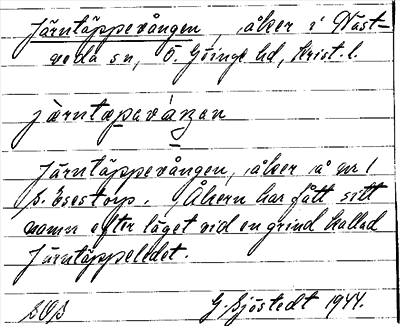 Järntäppevången, åker i Näst-
veda sn, Ö. Göinge hd, Krist. l.
järntæpavaŋan
Järntäppevången, åker å nr 1
p. Esestorp. Åkern har fått sitt
namn efter läget vid en grind kallad
Järntäppeledet.
G. Sjöstedt 1944.